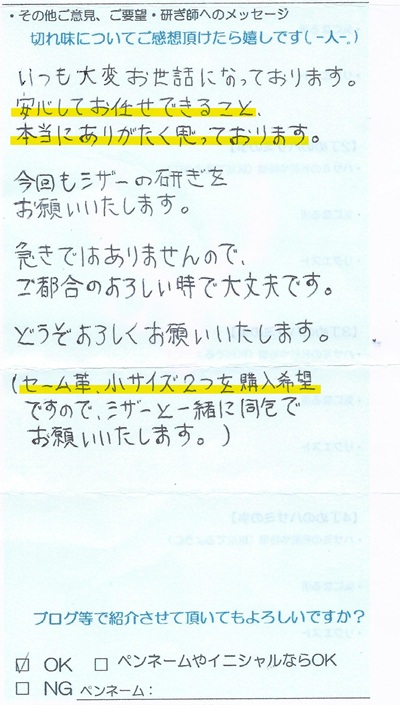 ・その他ご意見、ご要望・研ぎ師へのメッセージ
切れ味についてご感想頂けたら嬉しです(_ー人ー_)
いつも大変お世話になっております。
安心してお任せできること、
本当にありがたく思っております。
今回もシザーの研ぎを
お願いいたします。
急ぎではありませんので、
ご都合のよろしい時で大丈夫です。
どうぞよろしくお願いいたします。
(セーム革、小サイズ2つを購入希望
ですので、シザーと一緒に同包で
お願いいたします。)
ブログ等で紹介させて頂いてもよろしいですか?
☑ OK □ ペンネームやイニシャルならOK
□ NG ペンネーム: